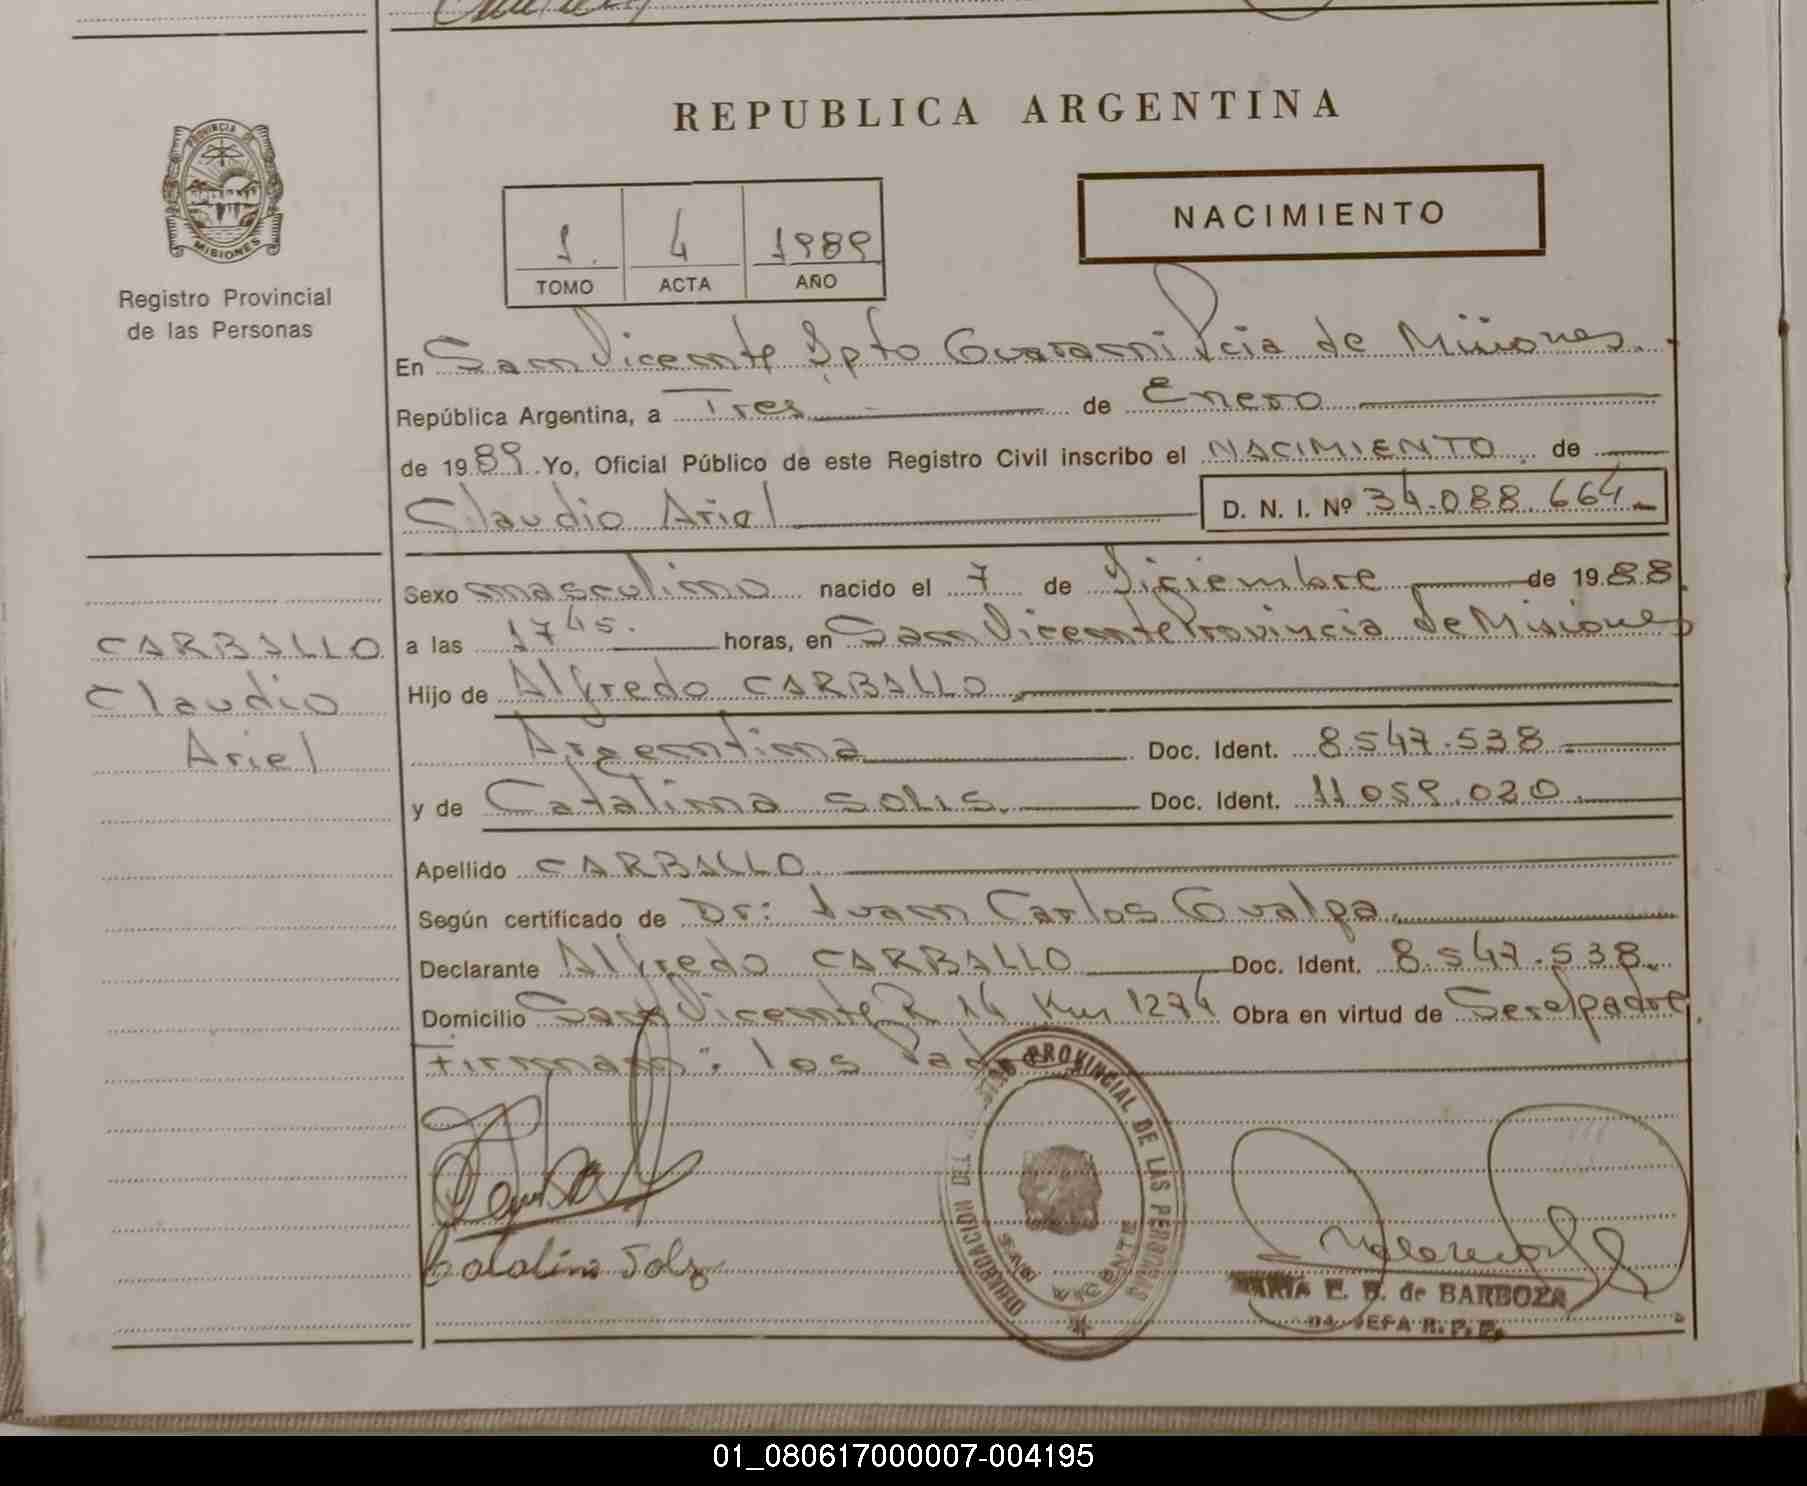 REPUBLICA ARGENTINA
PROVINCIA DE MISIONES
Registro Provincial
de las Personas
1 4 1989
TOMO ACTA AÑO
NACIMIENTO
En San Vicente Dpto Guarani Pcia de Misiones.
República Argentina, a Tres de Enero
de 1989 Yo, Oficial Público de este Registro Civil inscribo el NACIMIENTO de
Claudio Ariel D. N. I. Nº 34.088.664
CARBALLO
Claudio
Ariel
Sexo masculino nacido el 7 de Diciembre de 1988
a las 17 45. horas, en San Vicente Provincia de Misiones
Hijo de Alfredo CARBALLO
Argentina Doc. Ident. 8.547.538
y de Catalina SOLIS. Doc. Ident. 11.059.020
Apellido CARBALLO
Según certificado de Dr: Juan Carlos Gualpa
Declarante Alfredo CARBALLO Doc. Ident. 8.547.538.
Domicilio San Vicente R 14 Km 1274 Obra en virtud de Ser el padre.
Firman: los
PROVINCIAL DE LAS PERSONAS
SAN VICENTE
Catalina Solis
MARIA E. B. de BARBOZA
JEFA R. P. P.
01_080617000007-004195